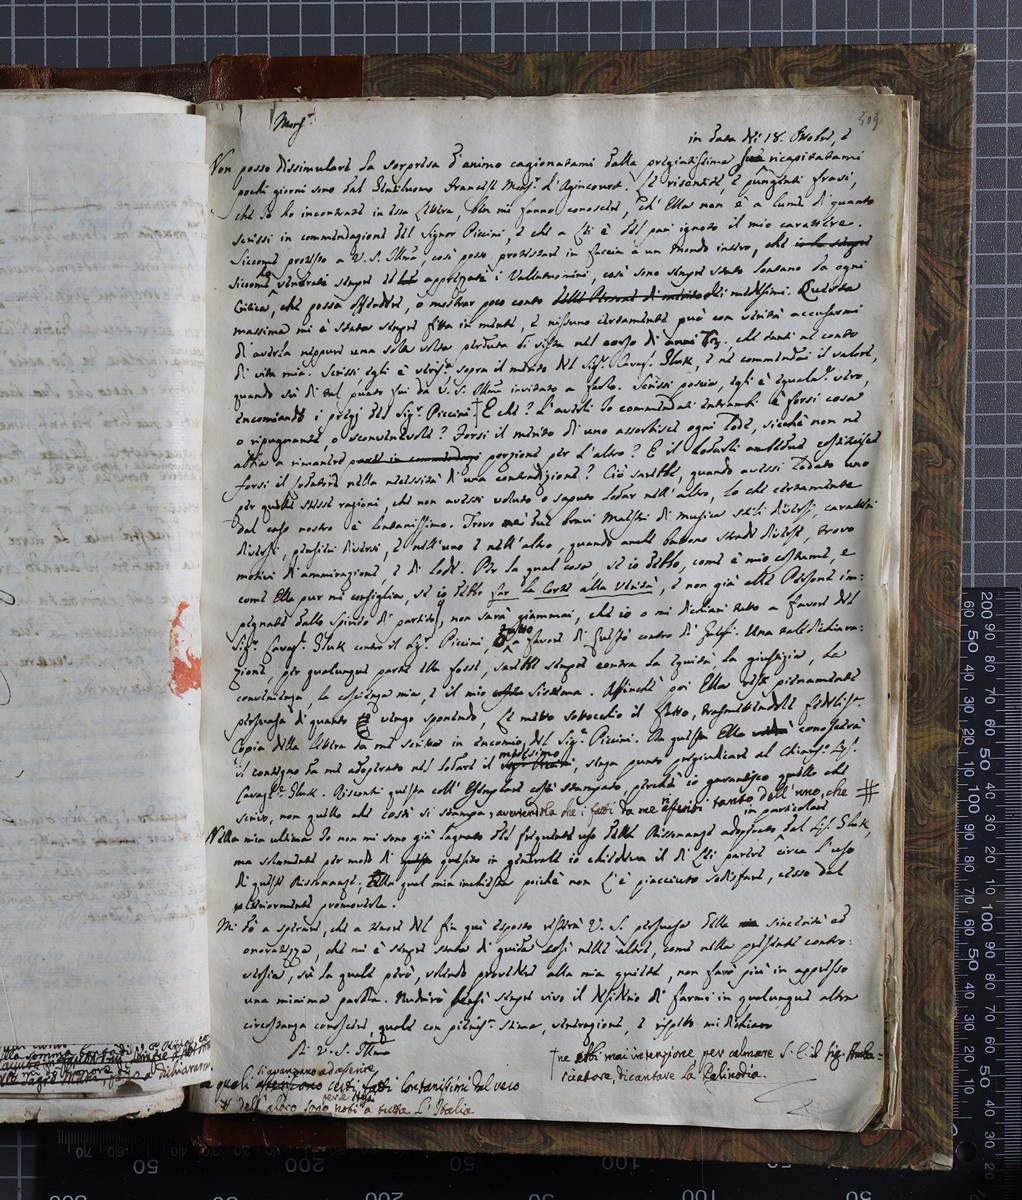 309
Mons.r
in data de' 18. Ottobre, e
Non posso dissimulare la sorpresa d'animo cagionatami dalla pregiatissima sua ricapitatami
pochi giorni sono dal Gentiluomo Francese Mons.r d'Agincourt. Le risentite, e pungenti frasi,
che Io ho incontrate in essa Lettera, ben mi fanno conoscere, ch'Ella non è a lume di quanto
scrissi in commendazione del Signor Piccini, e che a Lei è del pari ignoto il mio carattere.
Siccome protesto a V. S. Illma, così posso protestare in faccia a un mondo intero, che
siccome ho venerati sempre ed apprezzati i Valentuomini, così sono sempre stato lontano da ogni
Critica, che possa offendere, o mostrar poco conto dei medesimi. Questa
massima mi è stata sempre fitta in mente, e nissuno certamente può con verità accusarmi
di averla neppure una sola volta perduta di vista nel corso di anni 73. che tanti ne conto
di vita mia. Scrissi, egli è veriss.o sopra il merito del Sig.r Cavag.r Gluk, e ne commendai il valore,
quando su di tal punto fui da V. S. Illma invitato a farlo. Scrissi poscia, egli è egualm.e vero,
encomiando i pregi del Sig.r Piccini † E che? L'averli Io commendati entrambi è forse cosa
o ripugnante o sconvenevole? Forse il merito di uno assorbisce ogni lode, sicchè non ne
abbia a rimanere porzione per l'altro? E il lodarli amendue costituisce
forse il lodatore nella necessità di una contradizione? Ciò sarebbe, quando avessi lodato uno
per quelle stesse ragioni, che non avessi voluto o saputo lodar nell'altro, lo che certamente
dal caso nostro è lontanissimo. Trovo nei due bravi Maestri di Musica stili diversi, caratteri
diversi, pensieri diversi, e nell'uno e nell'altro, quando anche battono strade diverse, trovo
motivi di ammirazione, e di lode. Per la qual cosa se io debbo, come è mio costume, e
come Ella pur mi consiglia, se io debbo far la Corte alla Verità, e non già alle Persone im-
pegnate dallo spirito di partito, non sarà giammai, che io o mi dichiari tutto a favore del
Sig.r Cavag.r Gluk contro il Sig.r Piccini, o tutto a favore di questo contro di quello. Una tal dichiara-
zione, per qualunque parte ella fosse, sarebbe sempre contra la Equità, la giustizia, la
convenienza, la coscienza mia, e il mio sistema. Affinchè poi Ella resti pienamente
persuasa di quanto vengo sponendo, Le metto sottocchio il fatto, trasmettendole fedeliss.a
Copia della lettera da me scritta in encomio del Sig.r Piccini. Da questa Ella conoscerà
il contegno da me adoprato nel lodare il medesimo, senza punto pregiudicare al chiariss.o Sig.r
Cavag.r Gluk. Riscontri questa coll'Esemplare costì stampato, perchè io garantisco quello che
scrivo, non quello che costì si stampa, avvertendola che i fatti da me asseriti tanto dell'uno, che #
Nella mia ultima Io non mi sono già lagnato del frequente uso delle Rissonanze adoprate in particolare dal Sig.r Gluk,
ma solamente per modo di quesito in generale io chiedeva il di Lei parere circa l'uso
di queste Rissonanze; Alla qual mia inchiesta poichè non L'è piacciuto sodisfare, cesso dal
ulteriormente promoverla.
Mi fò a sperare, che a tenore del fin qui esposto resterà V. S. persuasa della sincerità ed
onoratezza, che mi è sempre stata di guida così nelle altre, come nella presente contro-
versia, su la quale però, volendo provedere alla mia quiete, non farò più in appresso
una minima parola. Nudrirò bensì sempre vivo il desiderio di farmi in qualunque altra
circostanza conoscere, quale con pieniss.a stima, venerazione, e rispetto mi dichiaro
Di V. S. Illma
† ne ebbi mai intenzione, per calmare S. E. il Sig.r Amba-
sciatore, di cantare la Palinodia.
si avanzano ad asserire,
quali certi fatti lontanissimi dal vero
# dell'altro sono noti a tutta l'Italia